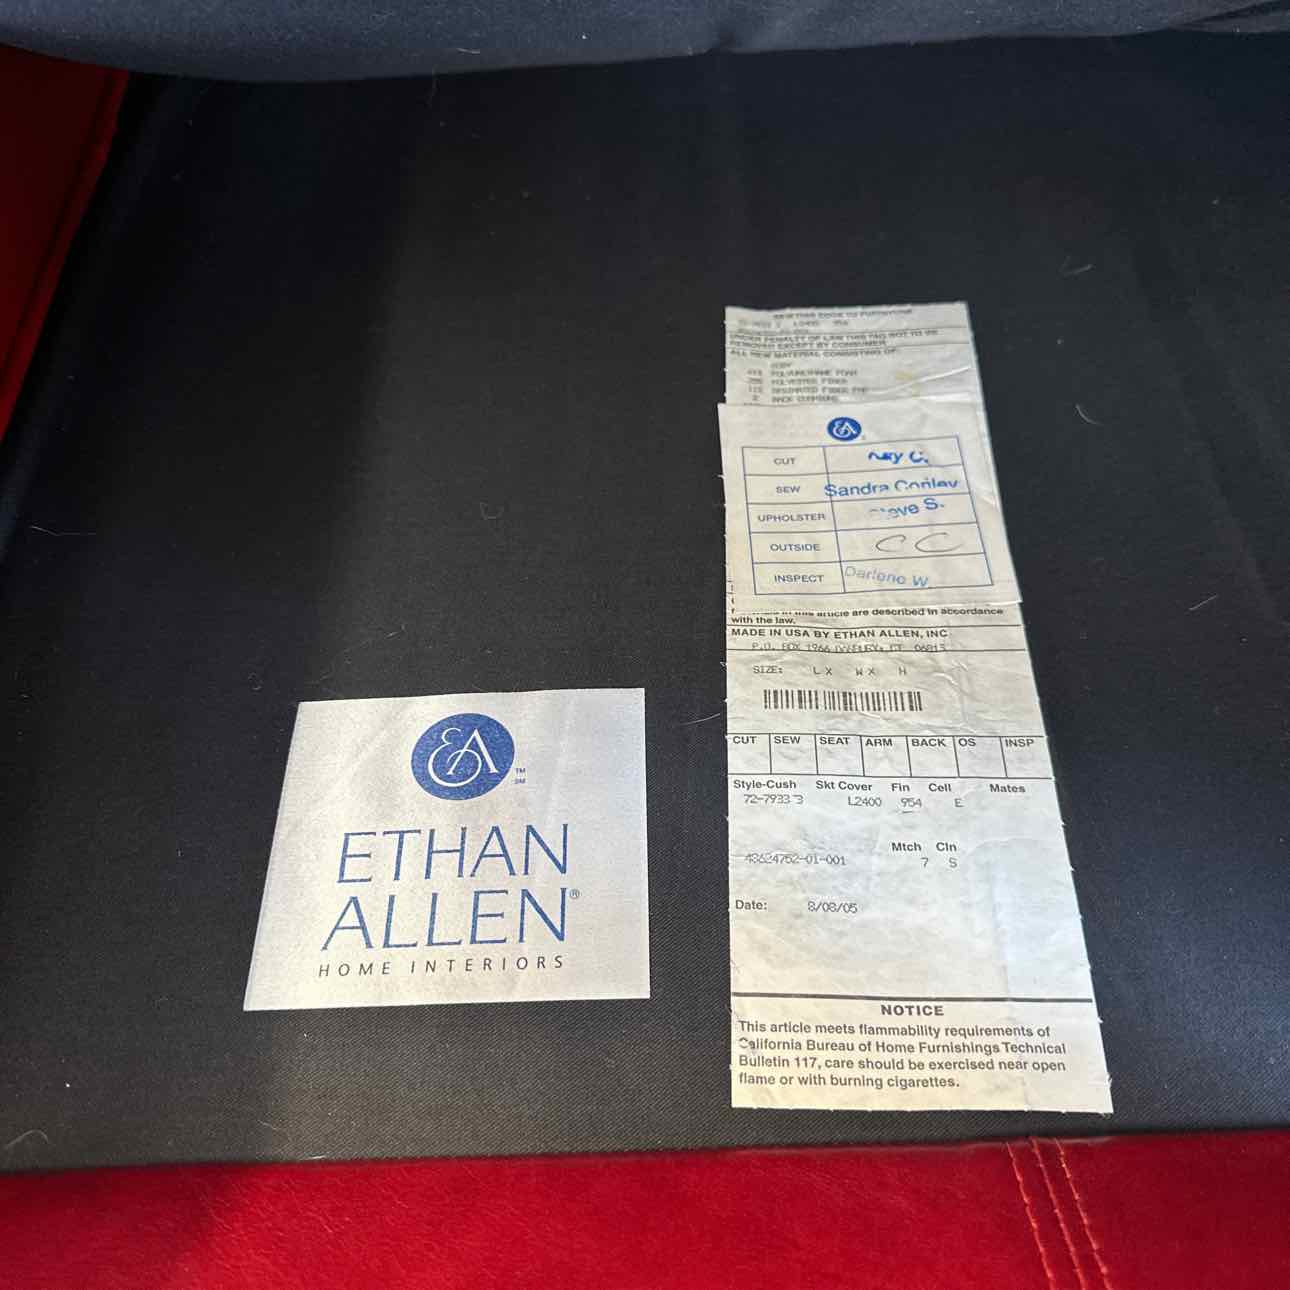 EA
TM
SM
ETHAN
ALLEN®
HOME INTERIORS
UNDER PENALTY OF LAW THIS TAG NOT TO BE
REMOVED EXCEPT BY CONSUMER
ALL NEW MATERIAL CONSISTING OF:
BODY
POLYURETHANE FOAM
POLYESTER FIBER
EA
CUT
SEW Sandra Conley
UPHOLSTER Steve S.
OUTSIDE CC
INSPECT Darlene W
in this article are described in accordance
with the law.
MADE IN USA BY ETHAN ALLEN, INC
P.O. BOX 1966 DANBURY, CT 06813
SIZE: L X W X H
CUT SEW SEAT ARM BACK OS INSP
Style-Cush Skt Cover Fin Cell Mates
72-7933 3 L2400 954 E
Mtch Cln
43624752-01-001 7 S
Date: 8/08/05
NOTICE
This article meets flammability requirements of
California Bureau of Home Furnishings Technical
Bulletin 117, care should be exercised near open
flame or with burning cigarettes.